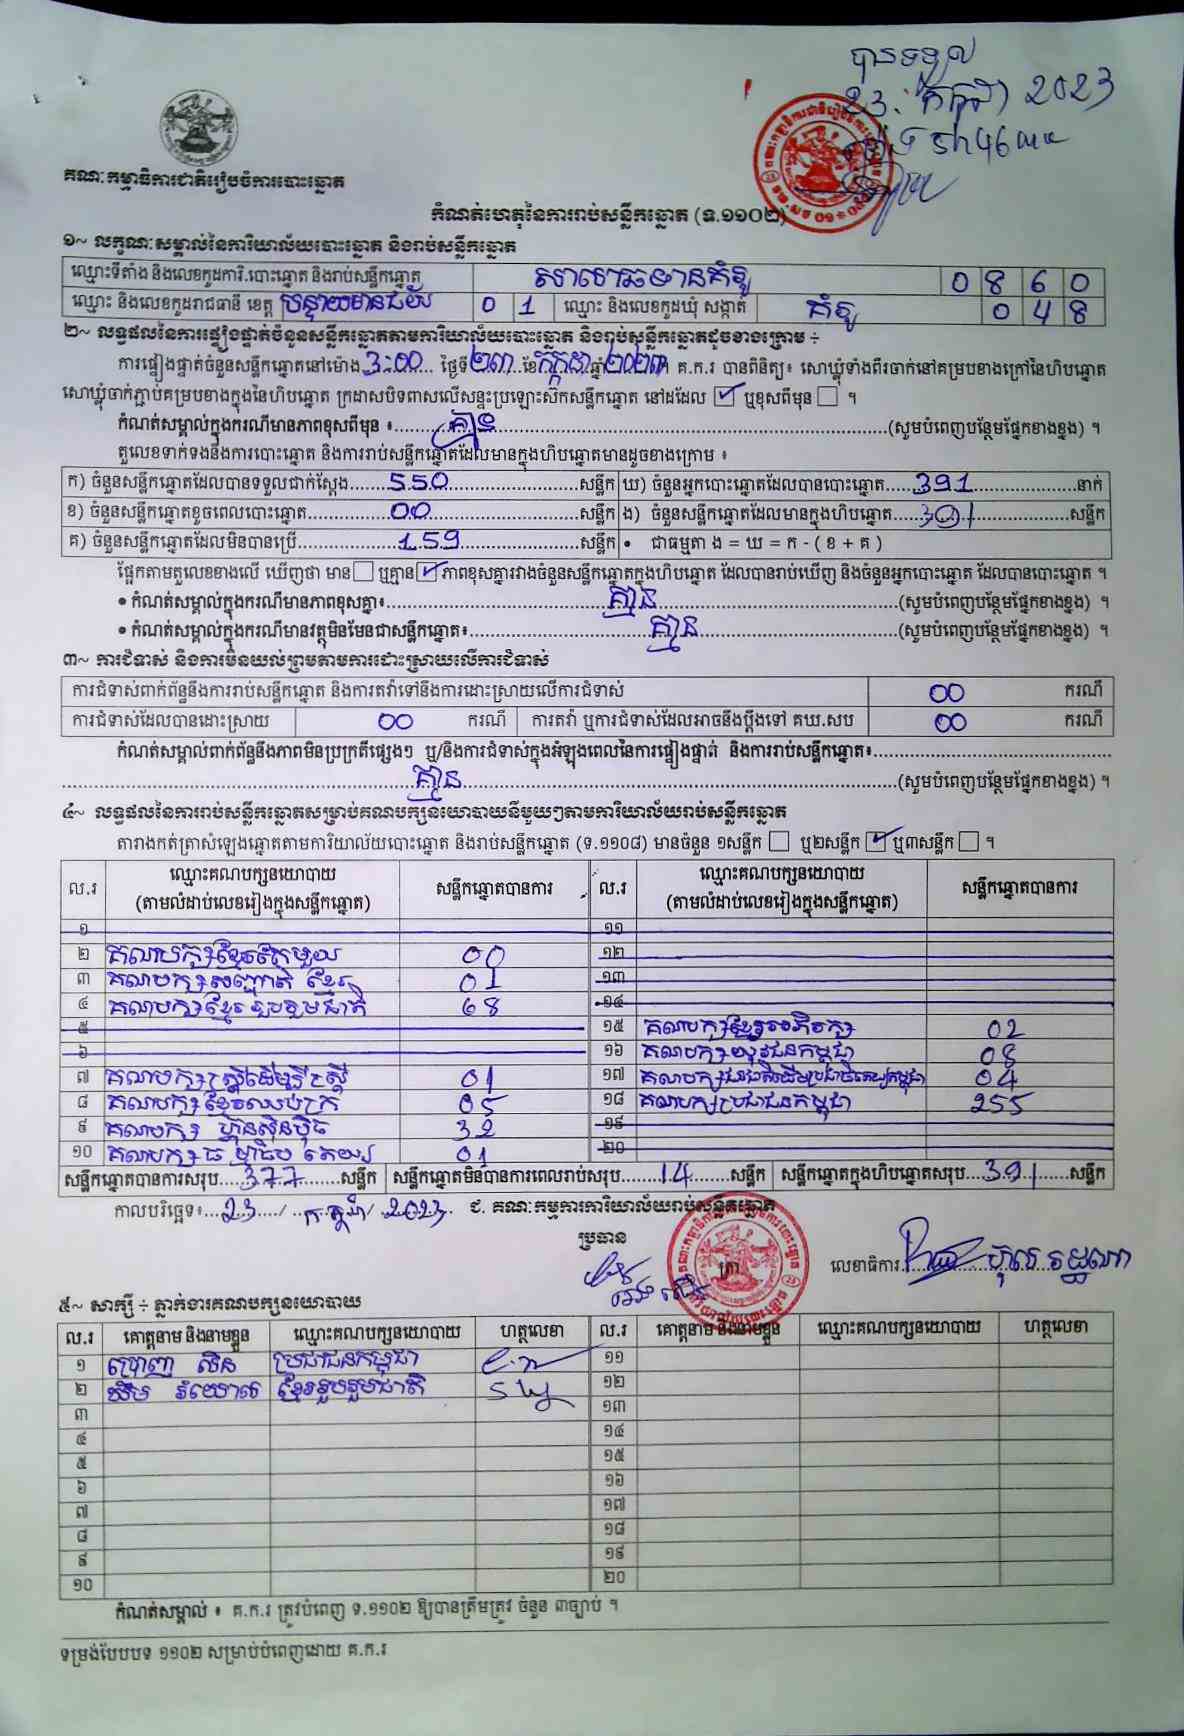 បានទទួល
23. កក្កដា 2023
5h46
គណៈកម្មាធិការជាតិរៀបចំការបោះឆ្នោត
កំណត់ហេតុនៃការរាប់សន្លឹកឆ្នោត (ទ.១១០២)
១~ លក្ខណៈសម្គាល់នៃការិយាល័យបោះឆ្នោត និងរាប់សន្លឹកឆ្នោត
ឈ្មោះទីតាំង និងលេខកូដការិ.បោះឆ្នោត និងរាប់សន្លឹកឆ្នោត 0 8 6 0
ឈ្មោះ និងលេខកូដរាជធានី ខេត្ត បន្ទាយមានជ័យ 0 1 ឈ្មោះ និងលេខកូដឃុំ សង្កាត់ គំរូ 0 4 8
២~ លទ្ធផលនៃការផ្ទៀងផ្ទាត់ចំនួនសន្លឹកឆ្នោតតាមការិយាល័យបោះឆ្នោត និងរាប់សន្លឹកឆ្នោតដូចខាងក្រោម ÷
ការផ្ទៀងផ្ទាត់ចំនួនសន្លឹកឆ្នោតនៅម៉ោង 3:00 ថ្ងៃទី ២៣ ខែ កក្កដា ឆ្នាំ ២០២៣ គ.ក.រ បានពិនិត្យ៖ សោឃ្លុំទាំងពីរចាក់នៅគម្របខាងក្រៅនៃហិបឆ្នោត
សោឃ្លុំចាក់ភ្ជាប់គម្របខាងក្នុងនៃហិបឆ្នោត ក្រដាសបិទពាសលើសន្ទះប្រឡោះស៊កសន្លឹកឆ្នោត នៅដដែល ☑ ឬខុសពីមុន ☐ ។
កំណត់សម្គាល់ក្នុងករណីមានភាពខុសពីមុន ៖ គ្មាន (សូមបំពេញបន្ថែមផ្នែកខាងខ្នង) ។
តួលេខទាក់ទងនឹងការបោះឆ្នោត និងការរាប់សន្លឹកឆ្នោតដែលមានក្នុងហិបឆ្នោតមានដូចខាងក្រោម ៖
ក) ចំនួនសន្លឹកឆ្នោតដែលបានទទួលជាក់ស្តែង 550 សន្លឹក ឃ) ចំនួនអ្នកបោះឆ្នោតដែលបានបោះឆ្នោត 391 នាក់
ខ) ចំនួនសន្លឹកឆ្នោតខូចពេលបោះឆ្នោត 00 សន្លឹក ង) ចំនួនសន្លឹកឆ្នោតដែលមានក្នុងហិបឆ្នោត 391 សន្លឹក
គ) ចំនួនសន្លឹកឆ្នោតដែលមិនបានប្រើ 159 សន្លឹក • ជាធម្មតា ង = ឃ = ក - ( ខ + គ )
ផ្អែកតាមតួលេខខាងលើ ឃើញថា មាន ☐ ឬគ្មាន ☑ ភាពខុសគ្នារវាងចំនួនសន្លឹកឆ្នោតក្នុងហិបឆ្នោត ដែលបានរាប់ឃើញ និងចំនួនអ្នកបោះឆ្នោត ដែលបានបោះឆ្នោត ។
• កំណត់សម្គាល់ក្នុងករណីមានភាពខុសគ្នា៖ គ្មាន (សូមបំពេញបន្ថែមផ្នែកខាងខ្នង) ។
• កំណត់សម្គាល់ក្នុងករណីមានវត្ថុមិនមែនជាសន្លឹកឆ្នោត៖ គ្មាន (សូមបំពេញបន្ថែមផ្នែកខាងខ្នង) ។
៣~ ការជំទាស់ និងការមិនយល់ព្រមតាមការដោះស្រាយលើការជំទាស់
ការជំទាស់ពាក់ព័ន្ធនឹងការរាប់សន្លឹកឆ្នោត និងការតវ៉ាទៅនឹងការដោះស្រាយលើការជំទាស់ 00 ករណី
ការជំទាស់ដែលបានដោះស្រាយ 00 ករណី ការតវ៉ា ឬការជំទាស់ដែលអាចនឹងប្តឹងទៅ គឃ.សប 00 ករណី
កំណត់សម្គាល់ពាក់ព័ន្ធនឹងភាពមិនប្រក្រតីផ្សេងៗ ឬ/និងការជំទាស់ក្នុងអំឡុងពេលនៃការផ្ទៀងផ្ទាត់ និងការរាប់សន្លឹកឆ្នោត៖
គ្មាន (សូមបំពេញបន្ថែមផ្នែកខាងខ្នង) ។
៤~ លទ្ធផលនៃការរាប់សន្លឹកឆ្នោតសម្រាប់គណបក្សនយោបាយនីមួយៗតាមការិយាល័យរាប់សន្លឹកឆ្នោត
តារាងកត់ត្រាសំឡេងឆ្នោតតាមការិយាល័យបោះឆ្នោត និងរាប់សន្លឹកឆ្នោត (ទ.១១០៨) មានចំនួន ១សន្លឹក ☐ ឬ២សន្លឹក ☑ ឬ៣សន្លឹក ☐ ។
ល.រ ឈ្មោះគណបក្សនយោបាយ (តាមលំដាប់លេខរៀងក្នុងសន្លឹកឆ្នោត) សន្លឹកឆ្នោតបានការ ល.រ ឈ្មោះគណបក្សនយោបាយ (តាមលំដាប់លេខរៀងក្នុងសន្លឹកឆ្នោត) សន្លឹកឆ្នោតបានការ
១ ១១
២ គណបក្សខ្មែរតែមួយ 00 ១២
៣ គណបក្សសញ្ជាតិខ្មែរ 01 ១៣
៤ គណបក្សខ្មែររួបរួមជាតិ 68 ១៤
៥ ១៥ គណបក្សខ្មែរអភិរក្ស 02
៦ ១៦ គណបក្សយុវជនកម្ពុជា 08
៧ គណបក្សស្ត្រីដើម្បីស្ត្រី 01 ១៧ គណបក្សជនជាតិដើមប្រជាធិបតេយ្យកម្ពុជា 04
៨ គណបក្សខ្មែរឈប់ក្រ 05 ១៨ គណបក្សប្រជាជនកម្ពុជា 255
៩ គណបក្ស ហ៊្វុនស៊ិនប៉ិច 32 ១៩
១០ គណបក្សធម្មាធិបតេយ្យ 01 ២០
សន្លឹកឆ្នោតបានការសរុប 377 សន្លឹក សន្លឹកឆ្នោតមិនបានការពេលរាប់សរុប 14 សន្លឹក សន្លឹកឆ្នោតក្នុងហិបឆ្នោតសរុប 391 សន្លឹក
កាលបរិច្ឆេទ៖ 23 / កក្កដា / 2023 ជ. គណៈកម្មការការិយាល័យរាប់សន្លឹកឆ្នោត
ប្រធាន
ត្រា
លេខាធិការ
៥~ សាក្សី ÷ ភ្នាក់ងារគណបក្សនយោបាយ
ល.រ គោត្តនាម និងនាមខ្លួន ឈ្មោះគណបក្សនយោបាយ ហត្ថលេខា ល.រ គោត្តនាម និងនាមខ្លួន ឈ្មោះគណបក្សនយោបាយ ហត្ថលេខា
១ ប្រជាជនកម្ពុជា ១១
២ ខ្មែររួបរួមជាតិ ១២
៣ ១៣
៤ ១៤
៥ ១៥
៦ ១៦
៧ ១៧
៨ ១៨
៩ ១៩
១០ ២០
កំណត់សម្គាល់ ៖ គ.ក.រ ត្រូវបំពេញ ទ.១១០២ ឱ្យបានត្រឹមត្រូវ ចំនួន ៣ច្បាប់ ។
ទម្រង់បែបបទ ១១០២ សម្រាប់បំពេញដោយ គ.ក.រ